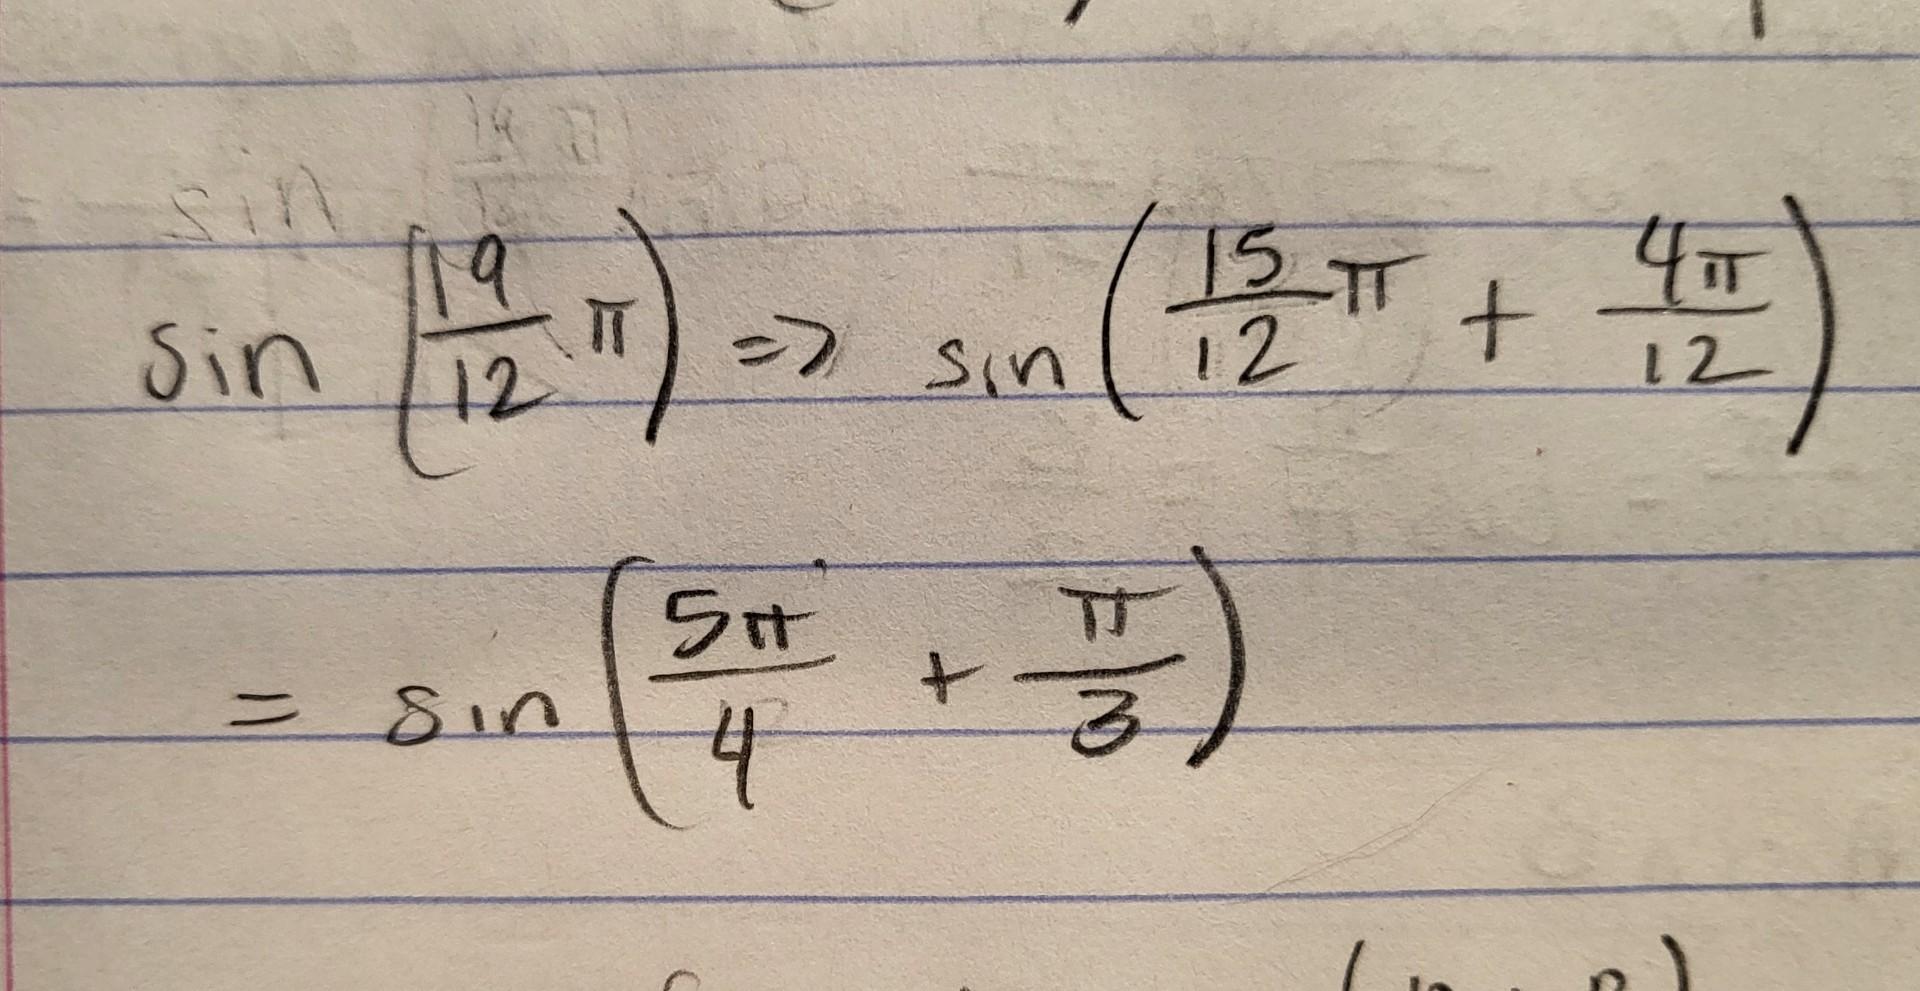 sin (19/12 π) => sin (15/12 π + 4π/12)
= sin (5π/4 + π/3)